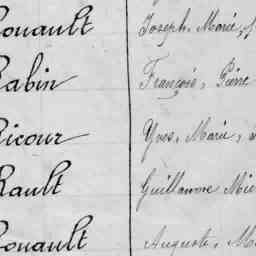 Rouault Joseph, Marie,
Rabin François, Pierre
Ricour Yves, Marie,
Rault Guillaume
Rouault Auguste,